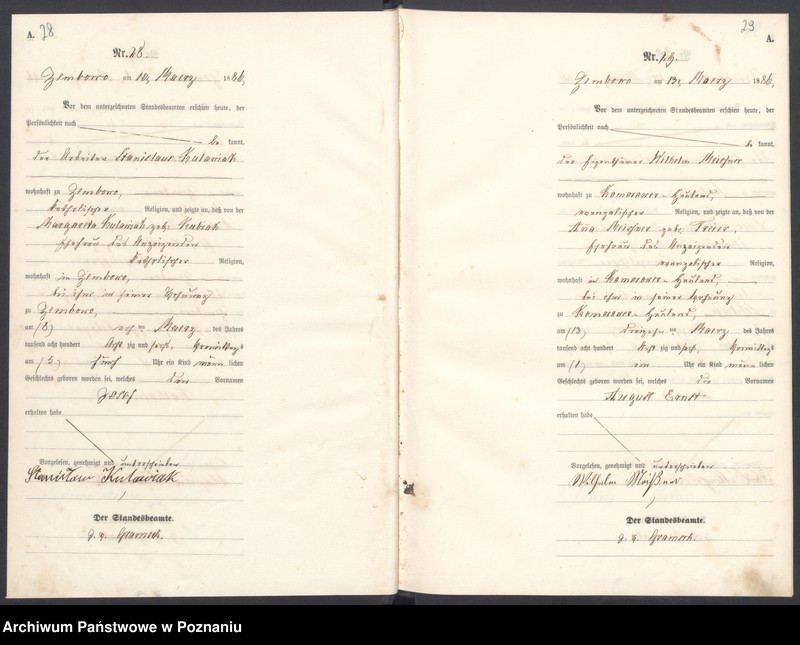 A. 28
Nr. 28.
Zembowo am 10, Maerz 1886,
Vor dem unterzeichneten Standesbeamten erschien heute, der
Persönlichkeit nach
be kannt,
der Arbeiter Stanislaus Kulawiak
wohnhaft zu Zembowo,
katholischer Religion, und zeigte an, daß von der
Margaretha Kulawiak geb: Kubiak
Ehefrau des Anzeigenden
katholischer Religion,
wohnhaft in Zembowo,
bei ihm in seiner Wohnung
zu Zembowo,
am (8) acht ten Maerz des Jahres
tausend acht hundert Acht zig und sechs, Vormittags
um (5) fünf Uhr ein Kind männ lichen
Geschlechts geboren worden sei, welches den Vornamen
Josef
erhalten habe
Vorgelesen, genehmigt und unterschrieben
Stanisław Kulawiak
Der Standesbeamte.
29
A.
Nr. 29.
Zembowo am 13, Maerz 1886,
Vor dem unterzeichneten Standesbeamten erschien heute, der
Persönlichkeit nach
be kannt,
der Eigenthümer Wilhelm Meißner
wohnhaft zu Komorower-Hauland,
evangelischer Religion, und zeigte an, daß von der
Meißner geb:
Ehefrau des Anzeigenden
evangelischer Religion,
wohnhaft in Komorower-Hauland,
bei ihm in seiner Wohnung
zu Komorower-Hauland,
am (13) dreizehn ten Maerz des Jahres
tausend acht hundert Acht zig und sechs, Vormittags
um (1) ein Uhr ein Kind männ lichen
Geschlechts geboren worden sei, welches die Vornamen
August Ernst
erhalten habe
Vorgelesen, genehmigt und unterschrieben
Wilhelm Meißner
Der Standesbeamte.
Archiwum Państwowe w Poznaniu